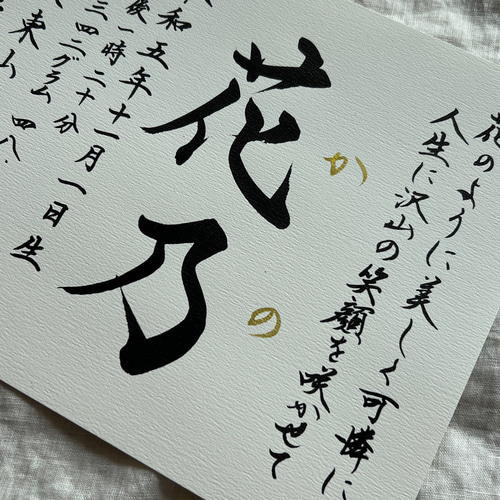 花のように美しく可憐に
人生に沢山の笑顔を咲かせて
花乃
かの
和五年十一月一日生
後一時二十分
三四二グラム
東山